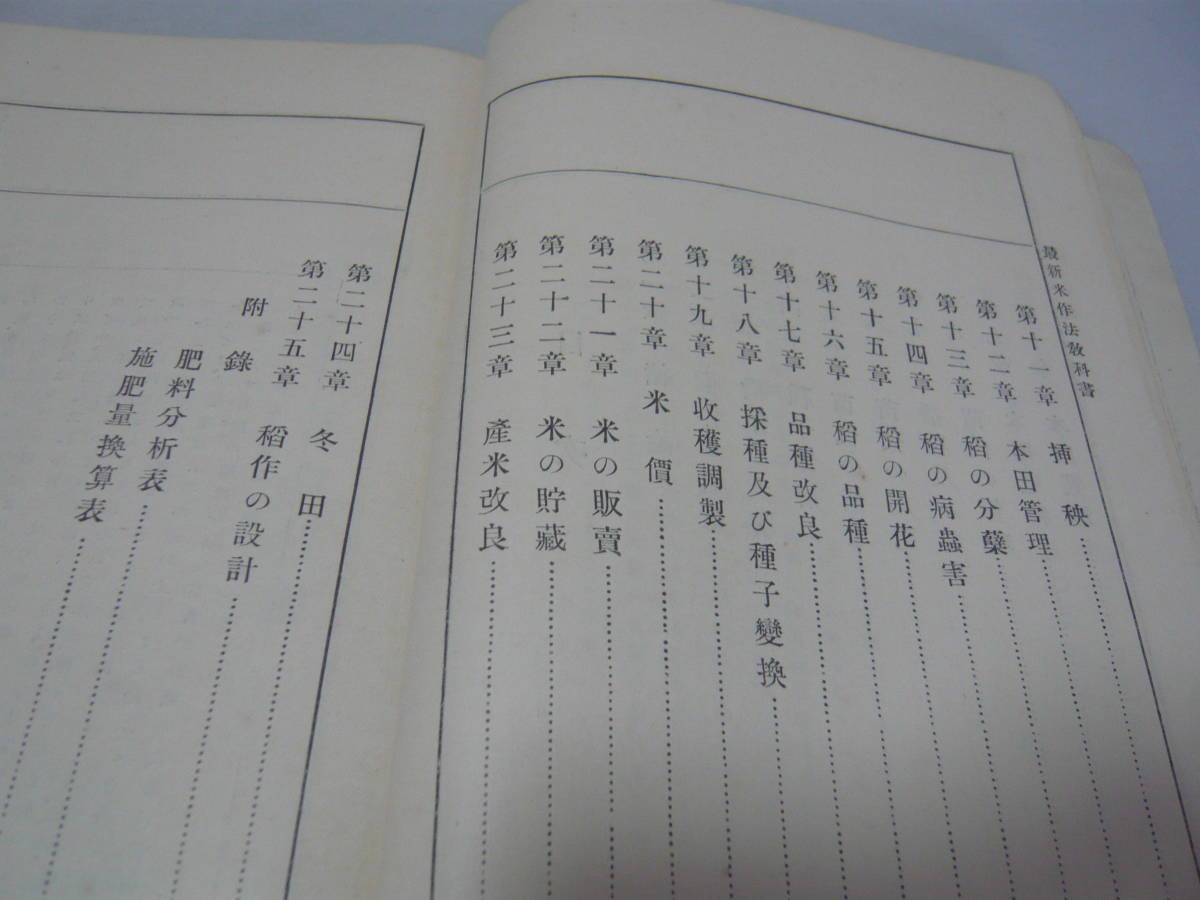 最新米作法敎科書
第十一章 挿秧
第十二章 本田管理
第十三章 稻の分蘖
第十四章 稻の病蟲害
第十五章 稻の開花
第十六章 稻の品種
第十七章 品種改良
第十八章 採種及び種子變換
第十九章 收穫調製
第二十章 米價
第二十一章 米の販賣
第二十二章 米の貯藏
第二十三章 產米改良
第二十四章 冬田
第二十五章 稻作の設計
附錄
肥料分析表
施肥量換算表